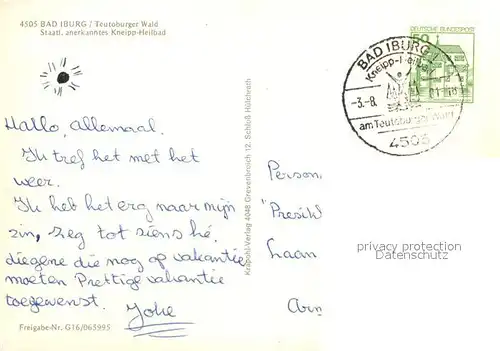 4505 BAD IBURG / Teutoburger Wald
Staatl. anerkanntes Kneipp-Heilbad
Hallo, Allemaal.
Ik tref het met het
weer.
Ik heb het erg naar mijn
zin, zeg tot siens hé.
diegene die nog op vakantie
moeten Prettige vakantie
toegewenst.
Joke
Freigabe-Nr. G16/063995
Krapohl-Verlag 4048 Grevenbroich 12, Schloß Hülchrath
DEUTSCHE BUNDESPOST
50
BAD IBURG
Kneipp-Heilbad
-3.-8.
am Teutoburger Wald
4505
Person
"Presi
Laan
Arn
privacy protection
Datenschutz